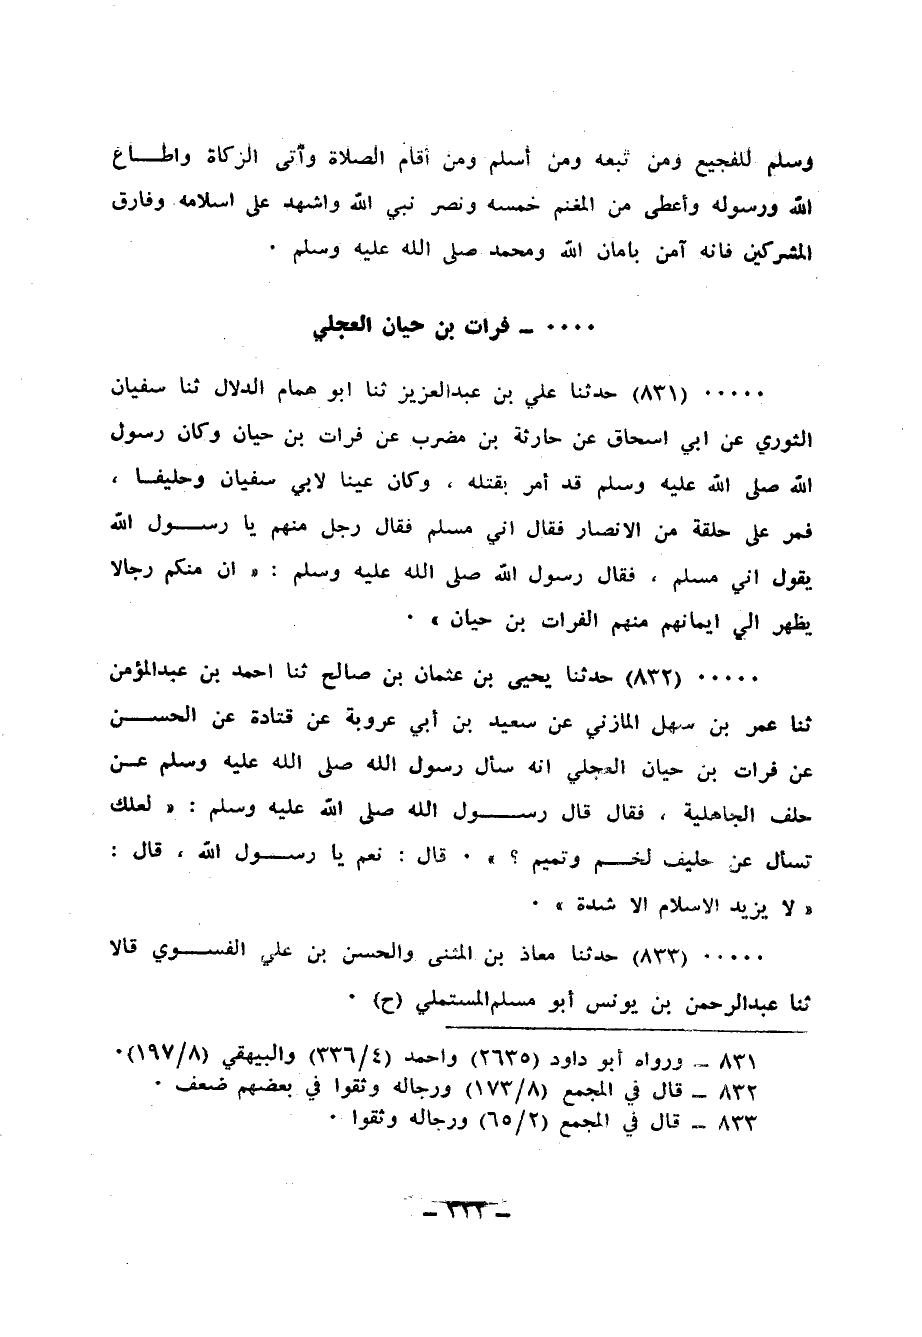 وسلم للفجيع ومن تبعه ومن أسلم ومن أقام الصلاة وآتى الزكاة واطـــاع
الله ورسوله وأعطى من المغنم خمسه ونصر نبي الله واشهد على اسلامه وفارق
المشركين فانه آمن بامان الله ومحمد صلى الله عليه وسلم ٠
٠٠٠٠ ـ فرات بن حيان العجلي
٠٠٠٠٠ (٨٣١) حدثنا علي بن عبدالعزيز ثنا ابو همام الدلال ثنا سفيان
الثوري عن ابي اسحاق عن حارثة بن مضرب عن فرات بن حيان وكان رسول
الله صلى الله عليه وسلم قد أمر بقتله ، وكان عينا لابي سفيان وحليفـا ،
فمر على حلقة من الانصار فقال اني مسلم فقال رجل منهم يا رســـول الله
يقول اني مسلم ، فقال رسول الله صلى الله عليه وسلم : « ان منكم رجالا
يظهر الي ايمانهم منهم الفرات بن حيان » ٠
٠٠٠٠٠ (٨٣٢) حدثنا يحيى بن عثمان بن صالح ثنا احمد بن عبدالمؤمن
ثنا عمر بن سهل المازني عن سعيد بن أبي عروبة عن قتادة عن الحســـن
عن فرات بن حيان العجلي انه سأل رسول الله صلى الله عليه وسلم عــن
حلف الجاهلية ، فقال قال رســـول الله صلى الله عليه وسلم : « لعلك
تسأل عن حليف لخـــم وتميم ؟ » ٠ قال : نعم يا رســـول الله ، قال :
« لا يزيد الاسلام الا شدة » ٠
٠٠٠٠٠ (٨٣٣) حدثنا معاذ بن المثنى والحسن بن علي الفســـوي قالا
ثنا عبدالرحمن بن يونس أبو مسلم المستملي (ح) ٠
٨٣١ ـ ورواه أبو داود (٢٦٣٥) واحمد (٣٣٦/٤) والبيهقي (١٩٧/٨)٠
٨٣٢ ـ قال في المجمع (١٧٣/٨) ورجاله وثقوا في بعضهم ضعف ٠
٨٣٣ ـ قال في المجمع (٦٥/٢) ورجاله وثقوا ٠
ـ ٣٢٢ ـ